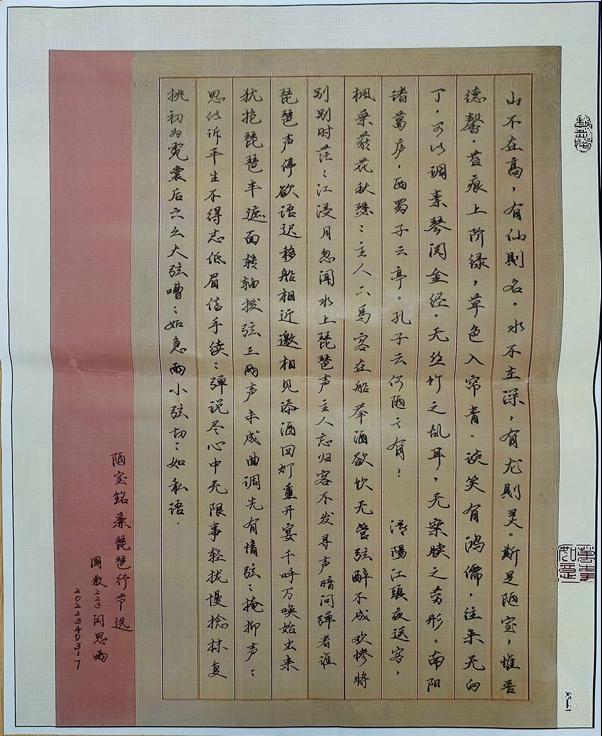 山不在高，有仙则名。水不在深，有龙则灵。斯是陋室，惟吾
德馨。苔痕上阶绿，草色入帘青。谈笑有鸿儒，往来无白
丁。可以调素琴阅金经。无丝竹之乱耳，无案牍之劳形。南阳
诸葛庐，西蜀子云亭。孔子云何陋之有？ 浔阳江头夜送客，
枫叶荻花秋瑟：主人下马客在船举酒欲饮无管弦醉不成欢惨将
别别时茫：江浸月忽闻水上琵琶声主人忘归客不发寻声暗问弹者谁
琵琶声停欲语迟移船相近邀相见添酒回灯重开宴千呼万唤始出来
犹抱琵琶半遮面转轴拨弦三两声未成曲调先有情弦：掩抑声：
思似诉平生不得志低眉信手续：弹说尽心中无限事轻拢慢捻抹复
挑初为霓裳后六幺大弦嘈：如急雨小弦切：如私语.
陋室铭桑琵琶行节选
国教223闫思雨
2022340317